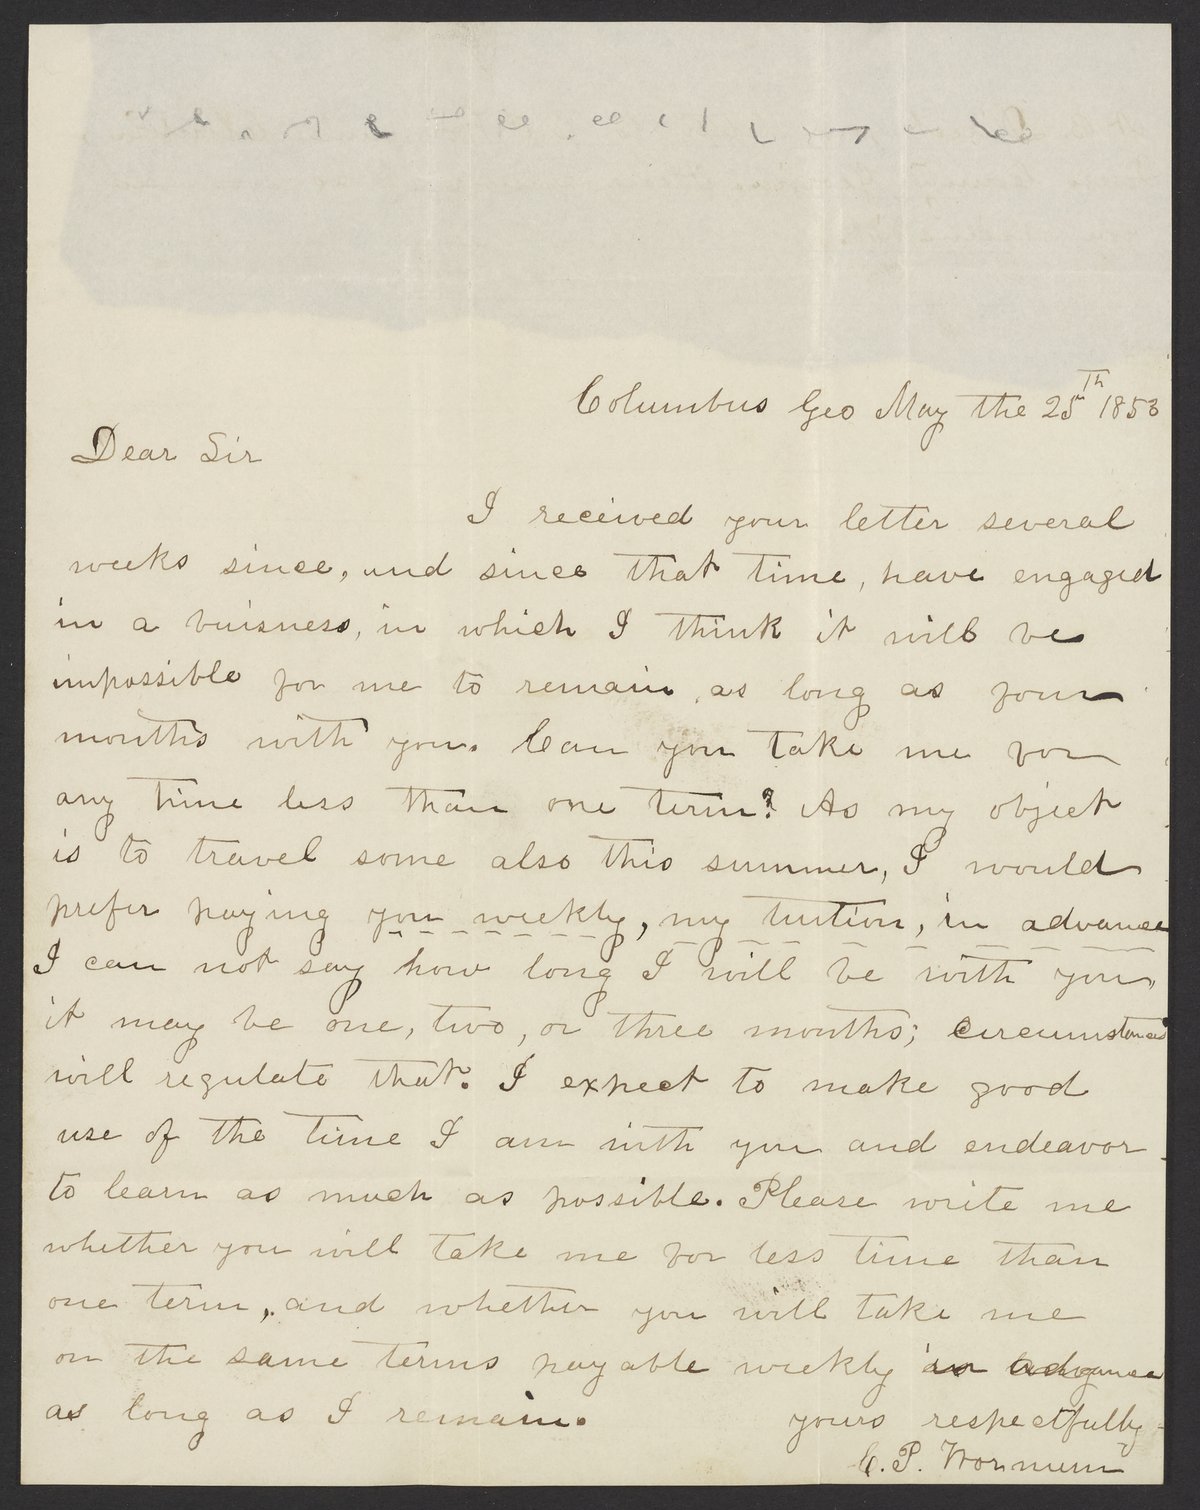 Columbus Geo May the 25th 1853
Dear Sir
I received your letter several
weeks since, and since that time, have engaged
in a buisness, in which I think it will be
impossible for me to remain, as long as four
months with you. Can you take me for
any time less than one term? As my object
is to travel some also this summer, I would
prefer paying you weekly, my tuition, in advance
I can not say how long I will be with you,
it may be one, two, or three months; circumstances
will regulate that. I expect to make good
use of the time I am with you and endeavor
to learn as much as possible. Please write me
whether you will take me for less time than
one term, and whether you will take me
on the same terms payable weekly in advance
as long as I remain.
yours respectfully
C. P.